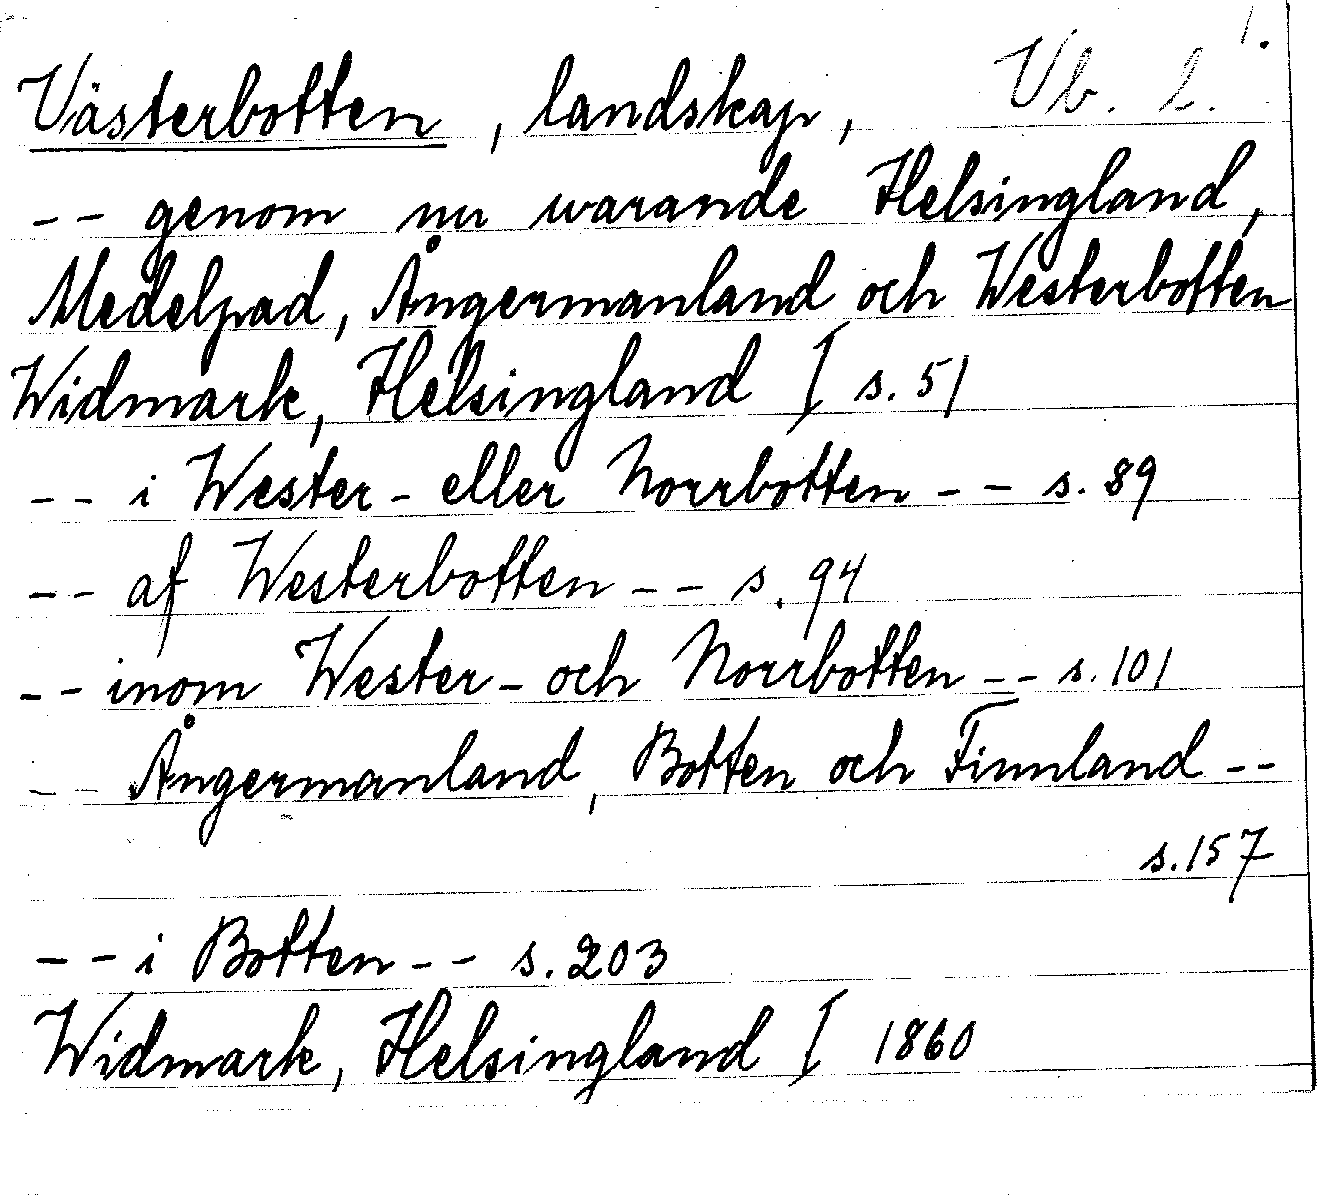 1.
Västerbotten, landskap, Vb. l.
-- genom nu warande Helsingland,
Medelpad, Ångermanland och Westerbotten
Widmark, Helsingland I s. 51
-- i Wester- eller Norrbotten -- s. 89
-- af Westerbotten -- s. 94
-- inom Wester- och Norrbotten -- s. 101
-- Ångermanland, Botten och Finnland --
s. 157
-- i Botten -- s. 203
Widmark, Helsingland I 1860